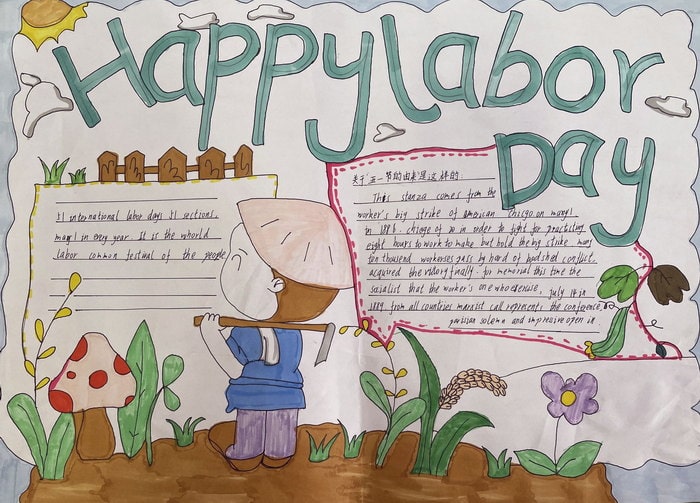 Happy labor
Day
51 international labor days 51 sections,
may 1 in every year. It is the whorld
labor common festival of the people
关于"五一"节的由来是这样的:
This stanza comes from the
worker's big strike of american chicgo.on may 1
in 1886. chicge of 20 in order to fight for practising
eight hours to work to make but hold the big strike many
ten thousand workerses pass by hard of bloodshed conflict,
acquired the victory finally. for memorial this time the
socialist that the worker's one who exercise, july 14 in
1889. from all countries marxist call represent: the conference,
parisian solemn and impressive open in